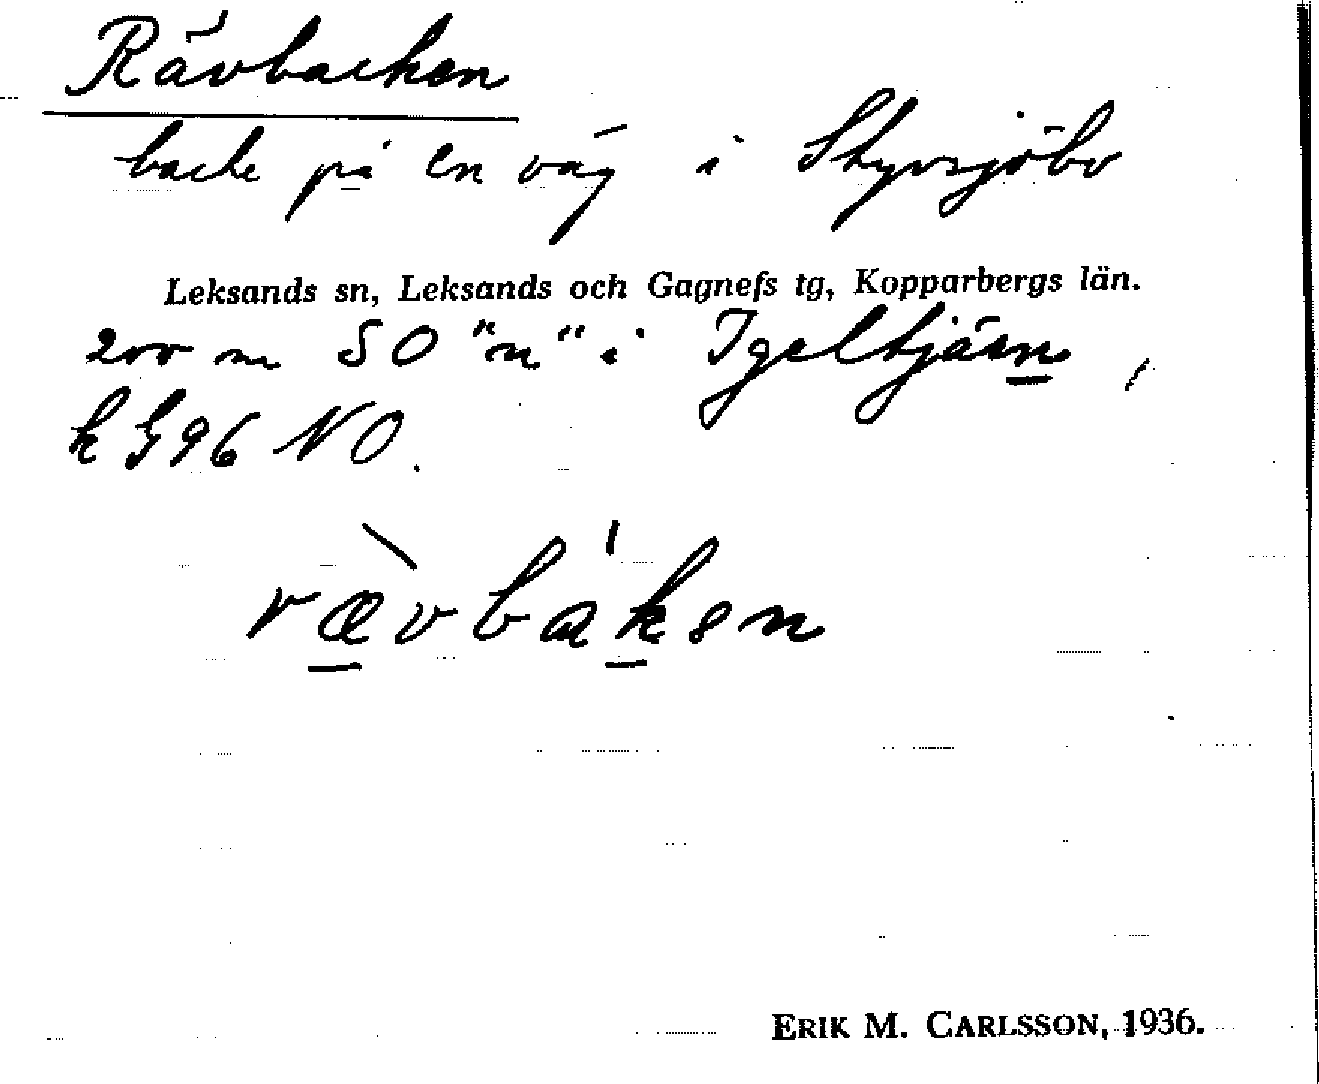 Rävbacken
backe på en väg i Styrsjöbo
Leksands sn, Leksands och Gagnefs tg, Kopparbergs län.
200 m SO "n" i Igeltjärn,
k G96 NO.
rævbaken
ERIK M. CARLSSON, 1936.